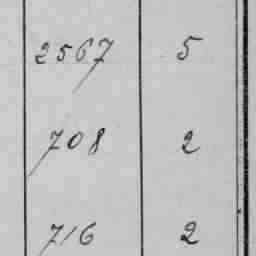 2567 5
708 2
716 2